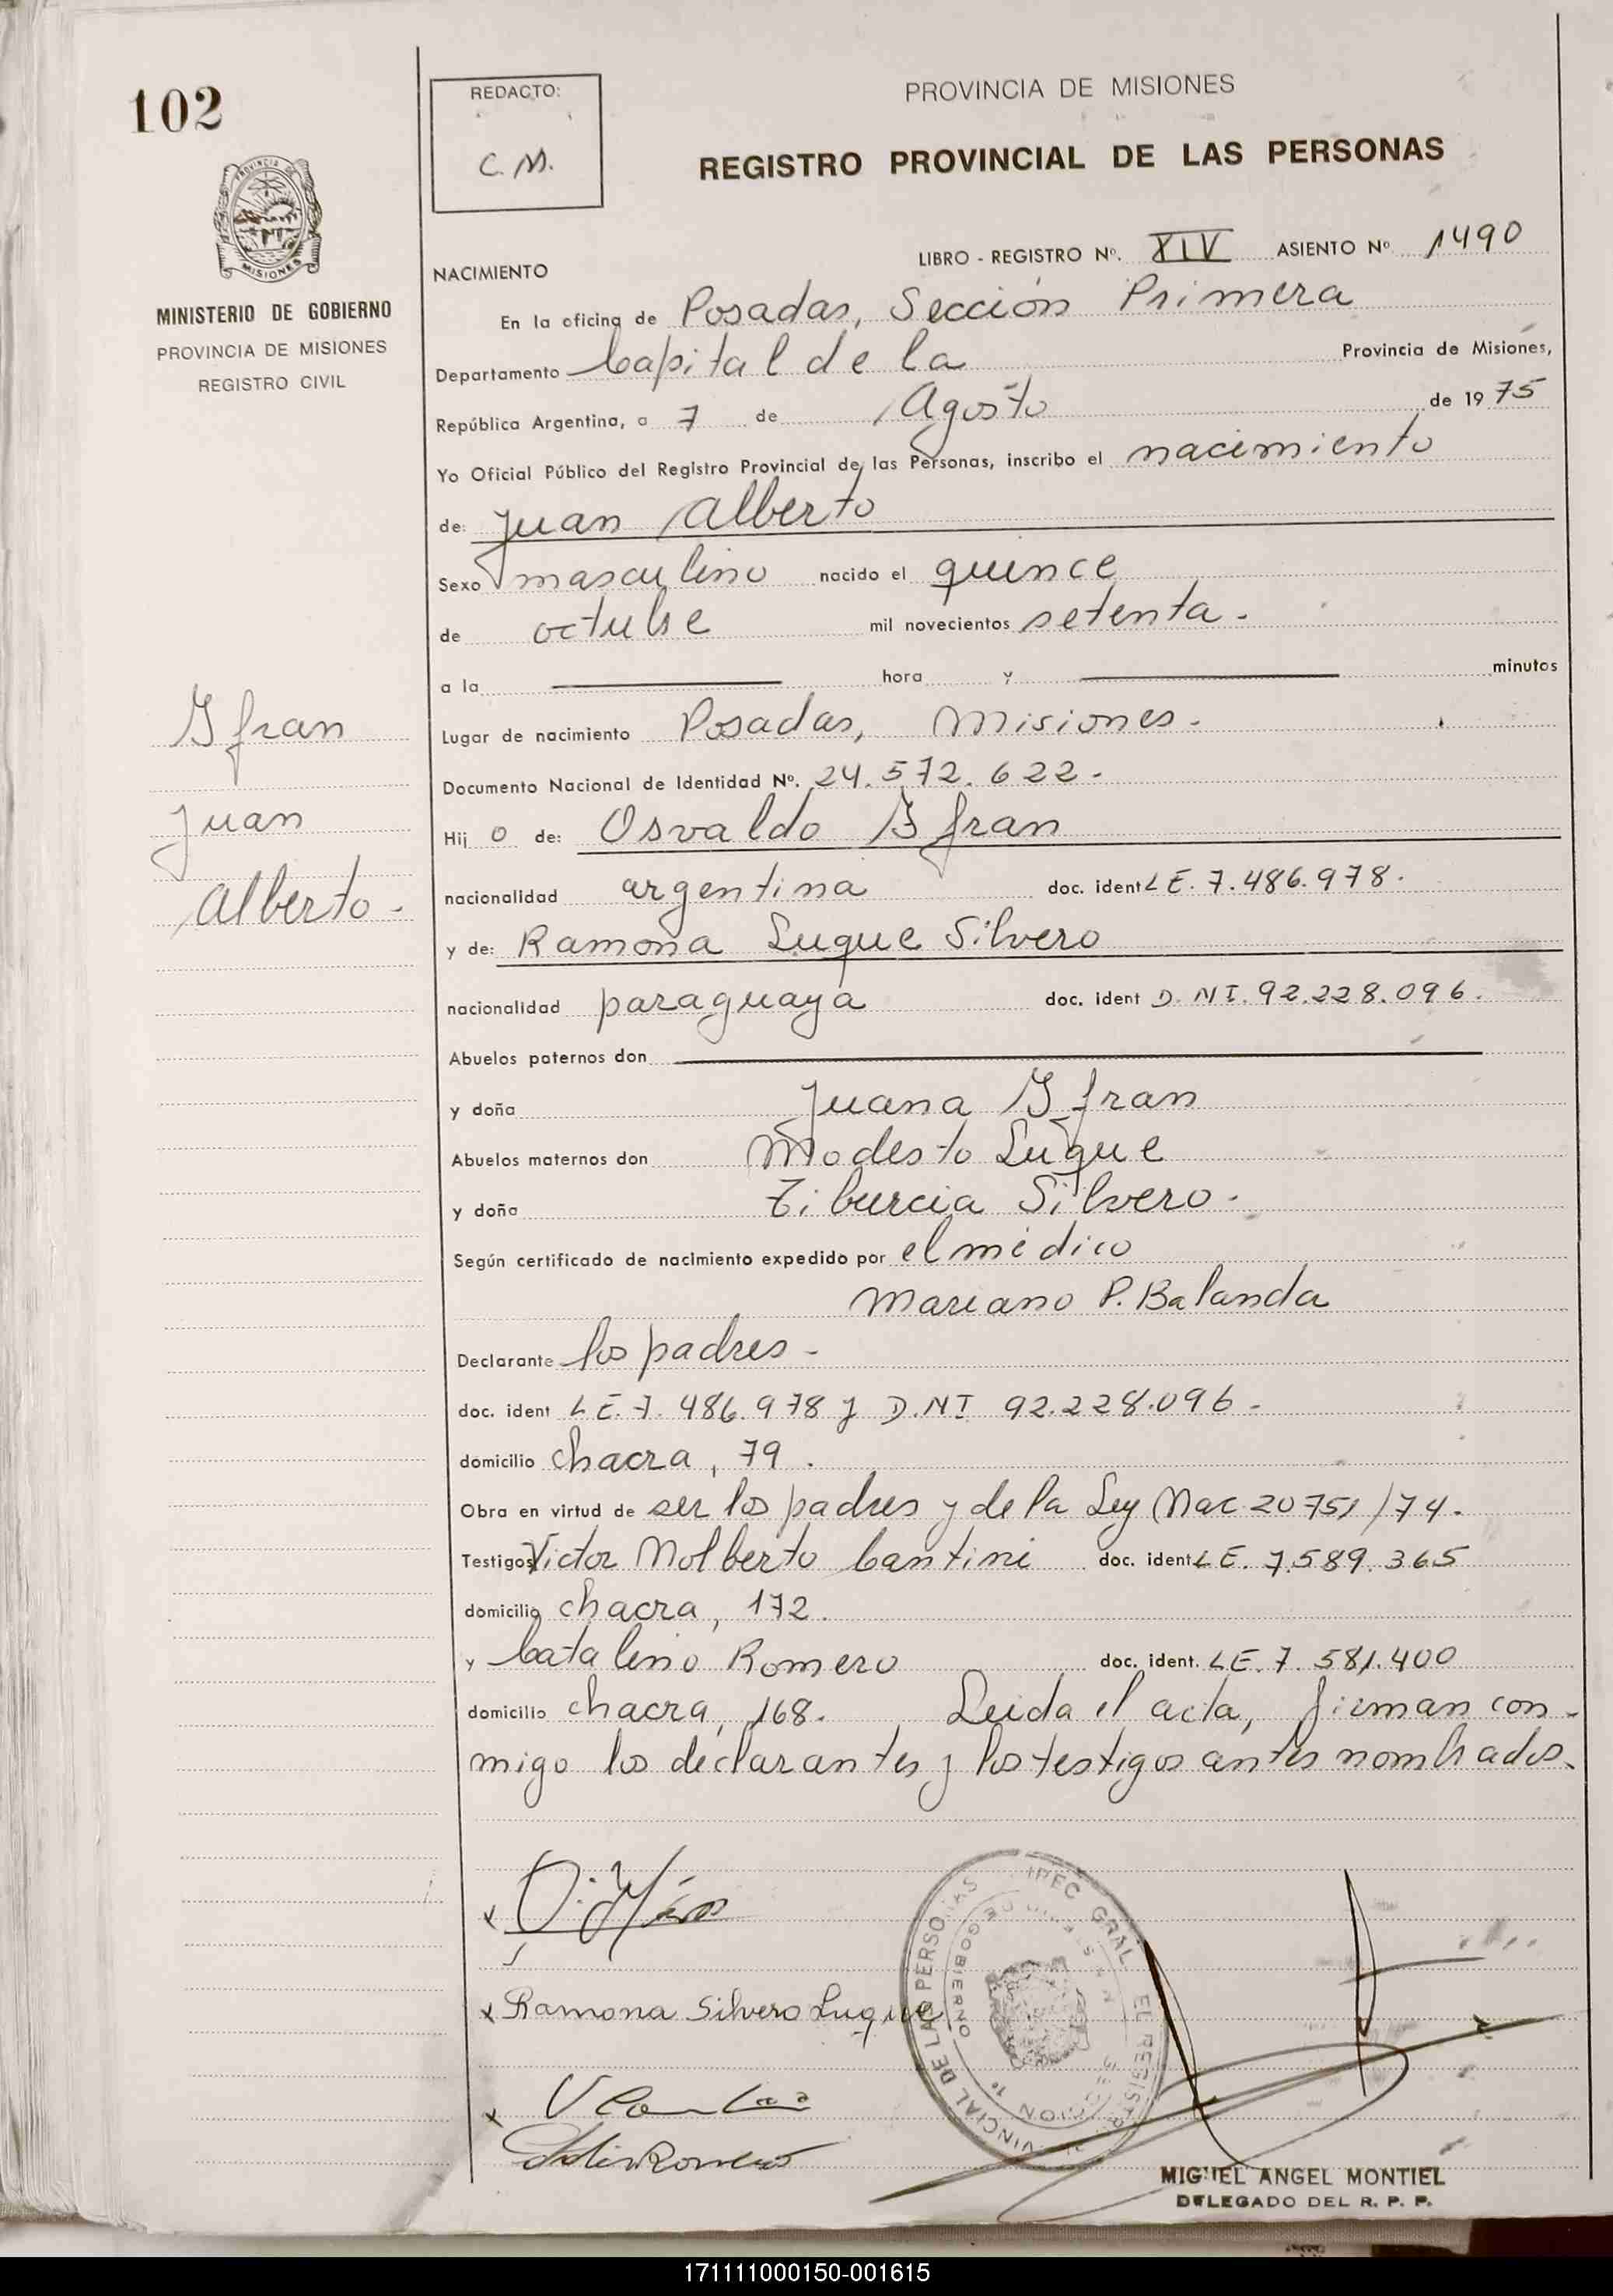 102
REDACTO:
C. M.
PROVINCIA DE MISIONES
REGISTRO PROVINCIAL DE LAS PERSONAS
PROVINCIA DE
MISIONES
MINISTERIO DE GOBIERNO
PROVINCIA DE MISIONES
REGISTRO CIVIL
LIBRO - REGISTRO Nº. XIV ASIENTO Nº 1490
NACIMIENTO
En la oficina de Posadas, Sección Primera
Departamento Capital de la Provincia de Misiones,
República Argentina, a 7 de Agosto de 1975
Yo Oficial Público del Registro Provincial de las Personas, inscribo el nacimiento
de: Juan Alberto
Sexo masculino nacido el quince
de octubre mil novecientos setenta.
a la hora y minutos
Ifran
Juan
Alberto.
Lugar de nacimiento Posadas, Misiones.
Documento Nacional de Identidad Nº. 24.572.622.
Hij o de: Osvaldo Ifran
nacionalidad argentina doc. ident LE. 7.486.978.
y de: Ramona Luque Silvero
nacionalidad paraguaya doc. ident D.NI. 92.228.096.
Abuelos paternos don
y doña Juana Ifran
Abuelos maternos don Modesto Luque
y doña Tiburcia Silvero.
Según certificado de nacimiento expedido por el médico
Mariano P. Balanda
Declarante los padres.
doc. ident LE. 7.486.978 y D.NI 92.228.096.
domicilio chacra, 79.
Obra en virtud de ser los padres y de la Ley Nac 20751/74.
Testigos Victor Nolberto Cantini doc. ident LE. 7.589.365
domicilio chacra, 172.
y Catalino Romero doc. ident. LE. 7.581.400
domicilio chacra, 168. Leida el acta, firman con-
migo los declarantes y los testigos antes nombrados.
x
x Ramona Silvero Luque
x
Romero
GRAL
EL REGIST
VINCIAL DE LAS PERSONAS
DE GOBIERNO
SECCION 1º
MIGUEL ANGEL MONTIEL
DELEGADO DEL R. P. P.
171111000150-001615